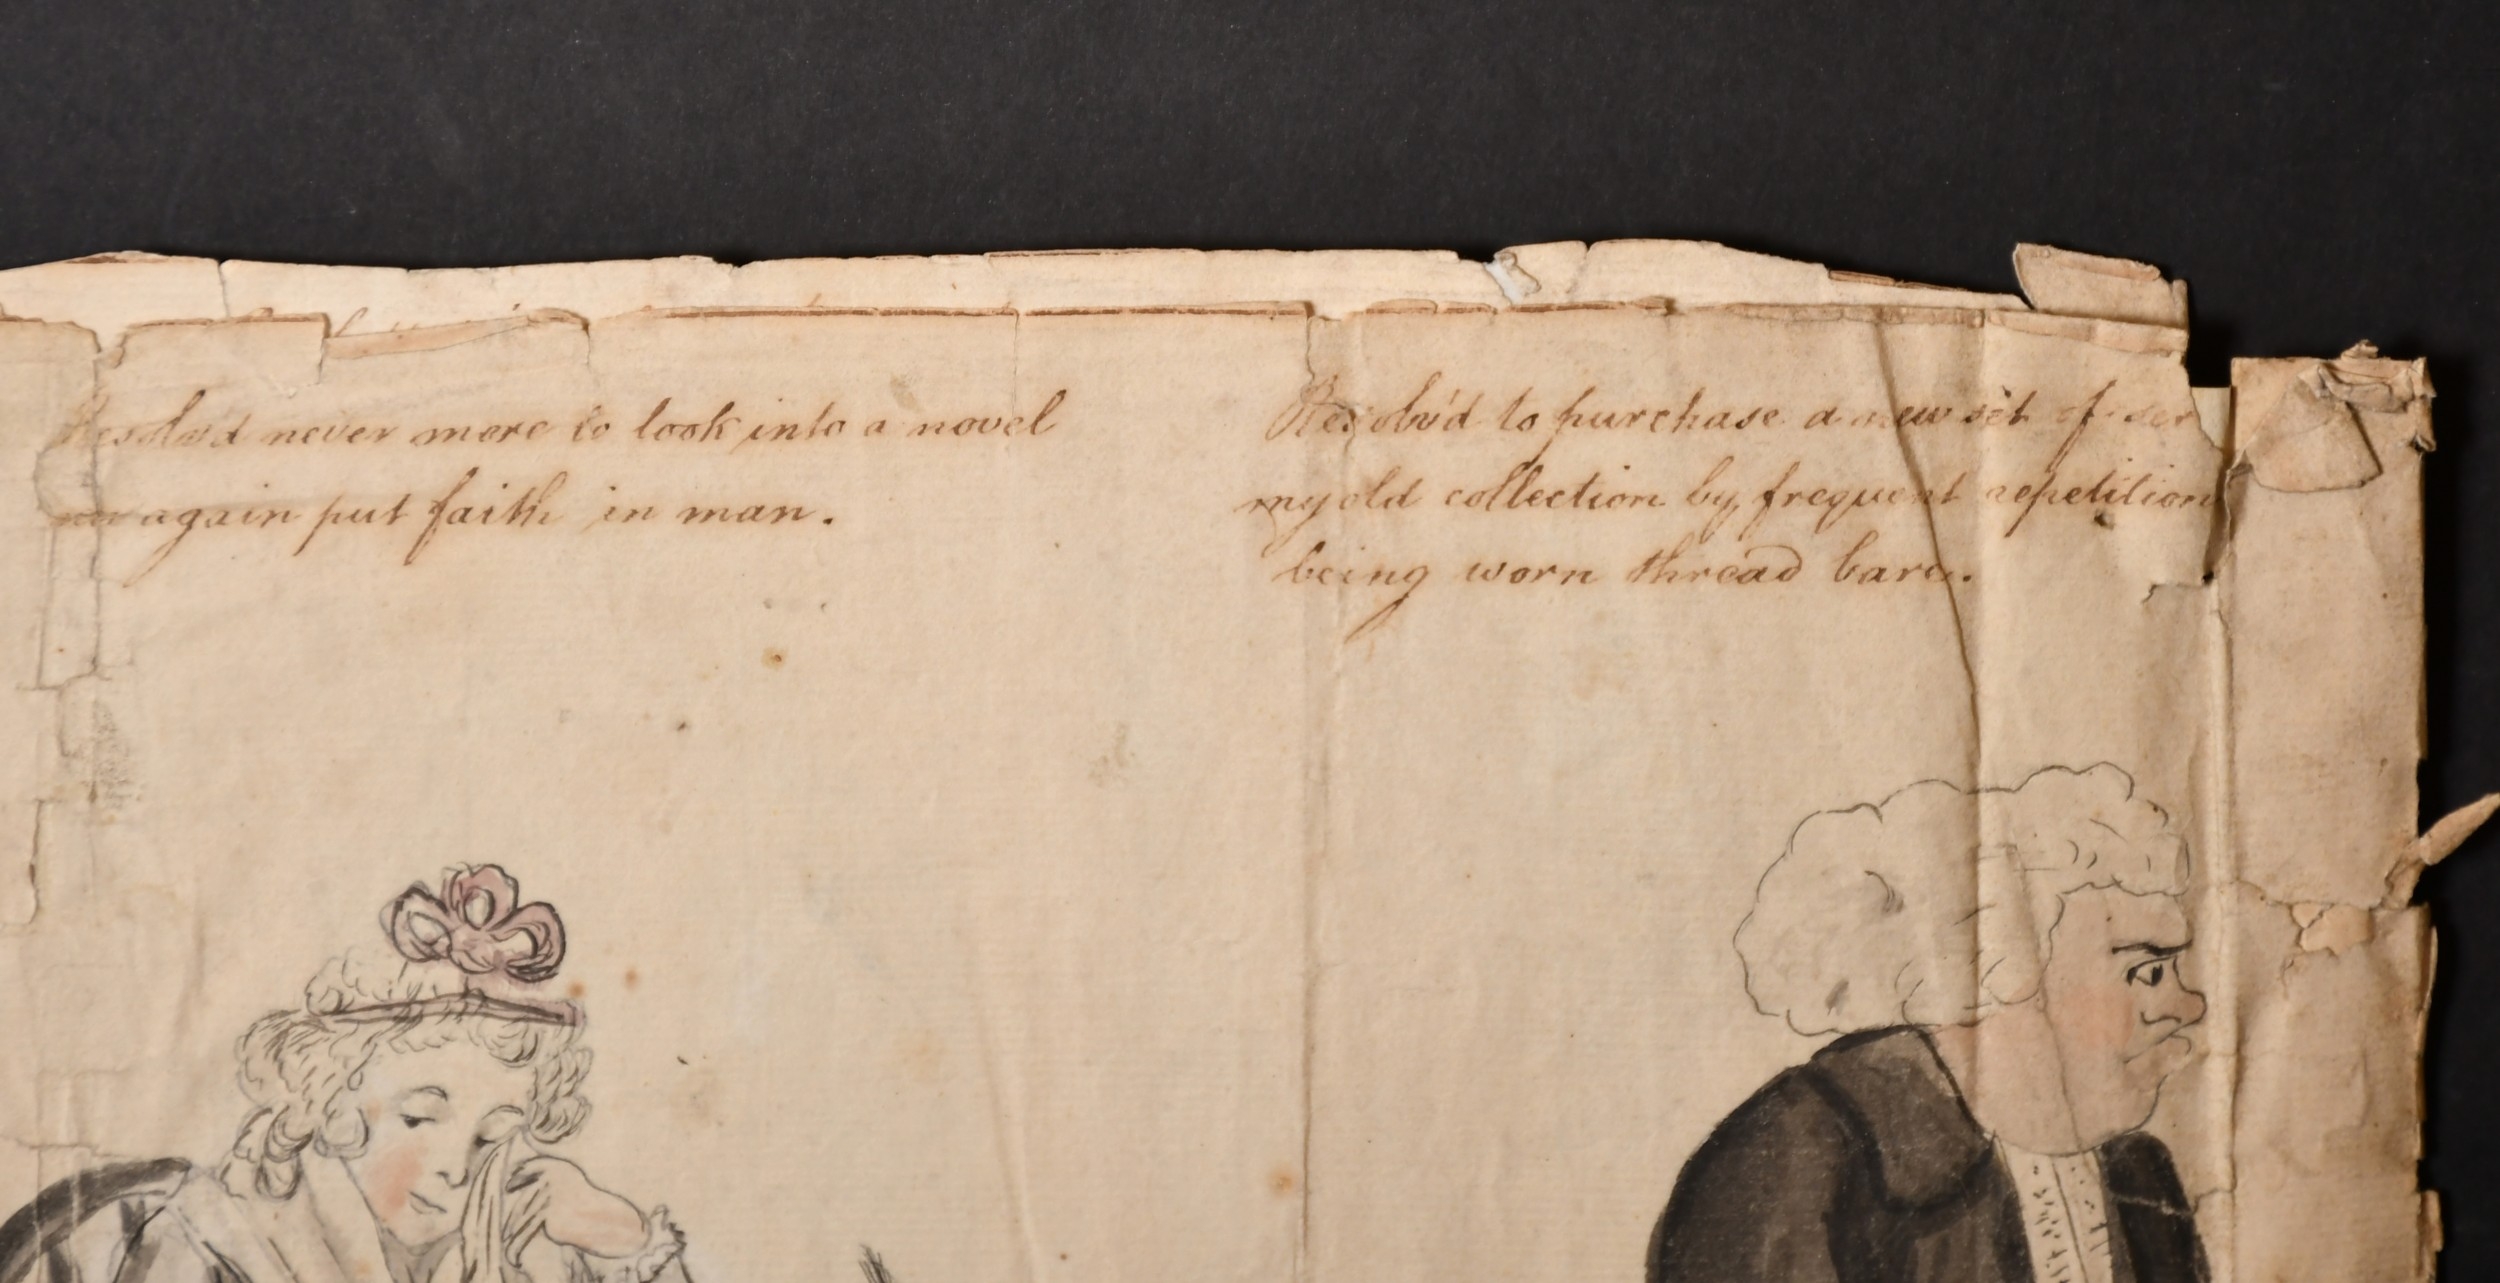 Resolv'd never more to look into a novel
again put faith in man.
Resolv'd to purchase a new set of ser
my old collection by frequent repetition
being worn thread bare.